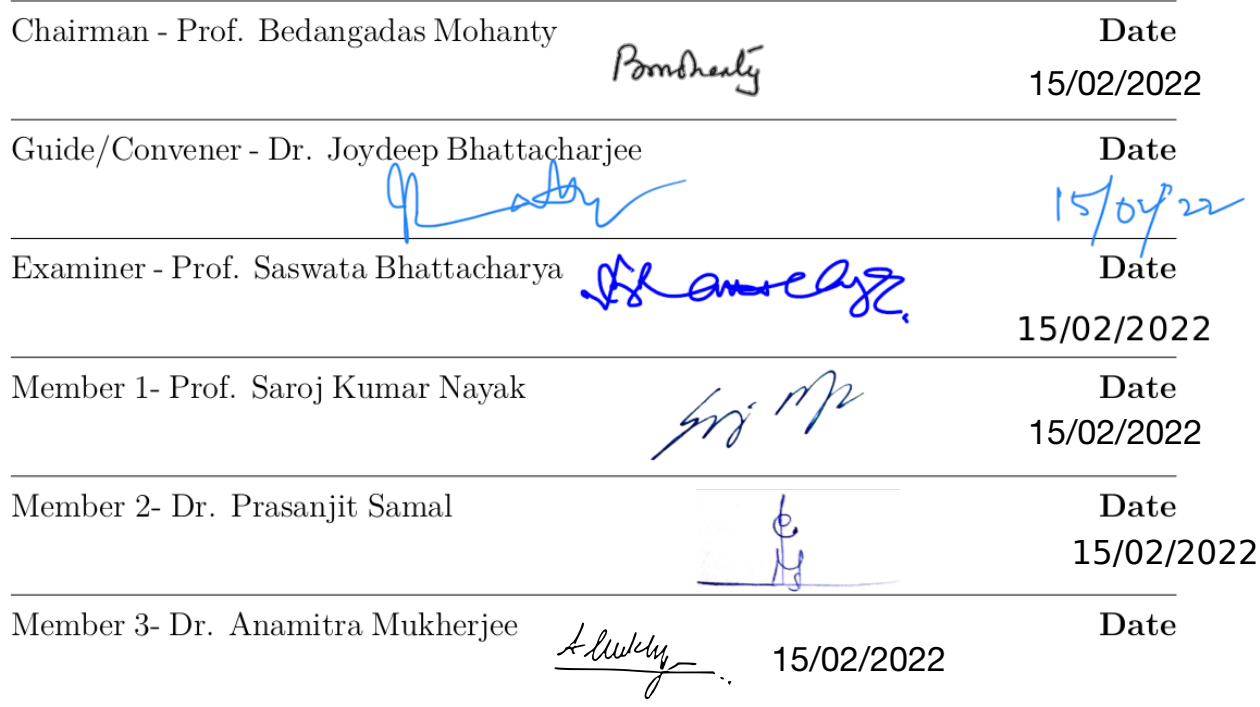 Chairman - Prof. Bedangadas Mohanty Date
15/02/2022
Guide/Convener - Dr. Joydeep Bhattacharjee Date
15/02/22
Examiner - Prof. Saswata Bhattacharya Date
15/02/2022
Member 1- Prof. Saroj Kumar Nayak Date
15/02/2022
Member 2- Dr. Prasanjit Samal Date
15/02/2022
Member 3- Dr. Anamitra Mukherjee Date
15/02/2022